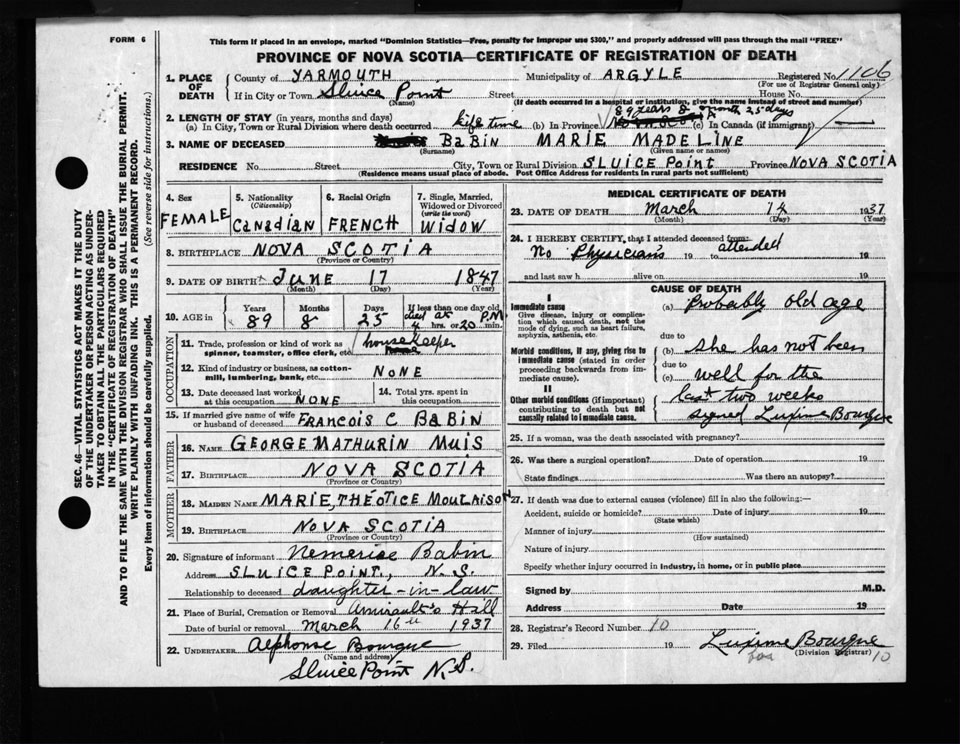 FORM 6
This form if placed in an envelope, marked "Dominion Statistics—Free, penalty for improper use $300," and properly addressed will pass through the mail "FREE"
PROVINCE OF NOVA SCOTIA—CERTIFICATE OF REGISTRATION OF DEATH
1. PLACE OF DEATH County of YARMOUTH Municipality of ARGYLE Registered No. 1106
(For use of Registrar General only)
If in City or Town Sluice Point Street House No.
(Name) (If death occurred in a hospital or institution, give the name instead of street and number)
2. LENGTH OF STAY (in years, months and days) 89 years 8 month 25 days
(a) In City, Town or Rural Division where death occurred life time (b) In Province NOVA SCOTIA (c) In Canada (if immigrant)
3. NAME OF DECEASED BABIN MARIE MADELINE
(Surname) (Given name or names)
RESIDENCE No. Street City, Town or Rural Division SLUICE POINT Province NOVA SCOTIA
(Residence means usual place of abode. Post Office Address for residents in rural parts not sufficient)
4. Sex 5. Nationality (Citizenship) 6. Racial Origin 7. Single, Married, Widowed or Divorced (write the word)
FEMALE Canadian FRENCH WIDOW
8. BIRTHPLACE NOVA SCOTIA
(Province or Country)
9. DATE OF BIRTH JUNE 17 1847
(Month) (Day) (Year)
10. AGE in Years Months Days If less than one day old
89 8 25 died at P.M
4 hrs. or 20 min.
OCCUPATION
11. Trade, profession or kind of work as spinner, teamster, office clerk, etc. housekeeper
12. Kind of industry or business, as cotton-mill, lumbering, bank, etc. NONE
13. Date deceased last worked at this occupation NONE 14. Total yrs. spent in this occupation
15. If married give name of wife or husband of deceased FRANCOIS C BABIN
FATHER
16. NAME GEORGE MATHURIN MUIS
17. BIRTHPLACE NOVA SCOTIA
(Province or Country)
MOTHER
18. MAIDEN NAME MARIE, THÉOTICE MOULAISON
19. BIRTHPLACE NOVA SCOTIA
(Province or Country)
20. Signature of informant Nemerise Babin
Address SLUICE POINT., N.S.
Relationship to deceased daughter-in-law
21. Place of Burial, Cremation or Removal Amirault's Hill
Date of burial or removal March 16 1937
22. UNDERTAKER Alphonse Bourque
(Name and address)
Sluice Point N.S.
MEDICAL CERTIFICATE OF DEATH
23. DATE OF DEATH March 12 1937
(Month) (Day) (Year)
24. I HEREBY CERTIFY, that I attended deceased from: attended
No Physicians 19 to 19
and last saw h alive on 19
CAUSE OF DEATH
I
Immediate cause (a) Probably old age
Give disease, injury or complication which caused death, not the mode of dying, such as heart failure, asphyxia, asthenia, etc.
due to
Morbid conditions, if any, giving rise to immediate cause (stated in order proceeding backwards from immediate cause).
(b) She has not been
due to
(c) well for the
II
Other morbid conditions (if important) contributing to death but not causally related to immediate cause.
last two weeks
signed Luxime Bourque
25. If a woman, was the death associated with pregnancy?
26. Was there a surgical operation? Date of operation 19
State findings Was there an autopsy?
27. If death was due to external causes (violence) fill in also the following:
Accident, suicide or homicide? Date of injury 19
(State which)
Manner of injury
(How sustained)
Nature of injury
Specify whether injury occurred in industry, in home, or in public place
Signed by M.D.
Address Date 19
28. Registrar's Record Number 10
29. Filed 19 Luxime Bourque
(Division Registrar) 10
SEC. 46—VITAL STATISTICS ACT MAKES IT THE DUTY
OF THE UNDERTAKER OR PERSON ACTING AS UNDERTAKER TO OBTAIN ALL THE PARTICULARS REQUIRED
IN THE "CERTIFICATE OF REGISTRATION OF DEATH"
AND TO FILE THE SAME WITH THE DIVISION REGISTRAR WHO SHALL ISSUE THE BURIAL PERMIT.
WRITE PLAINLY WITH UNFADING INK. THIS IS A PERMANENT RECORD.
Every item of information should be carefully supplied. (See reverse side for instructions.)